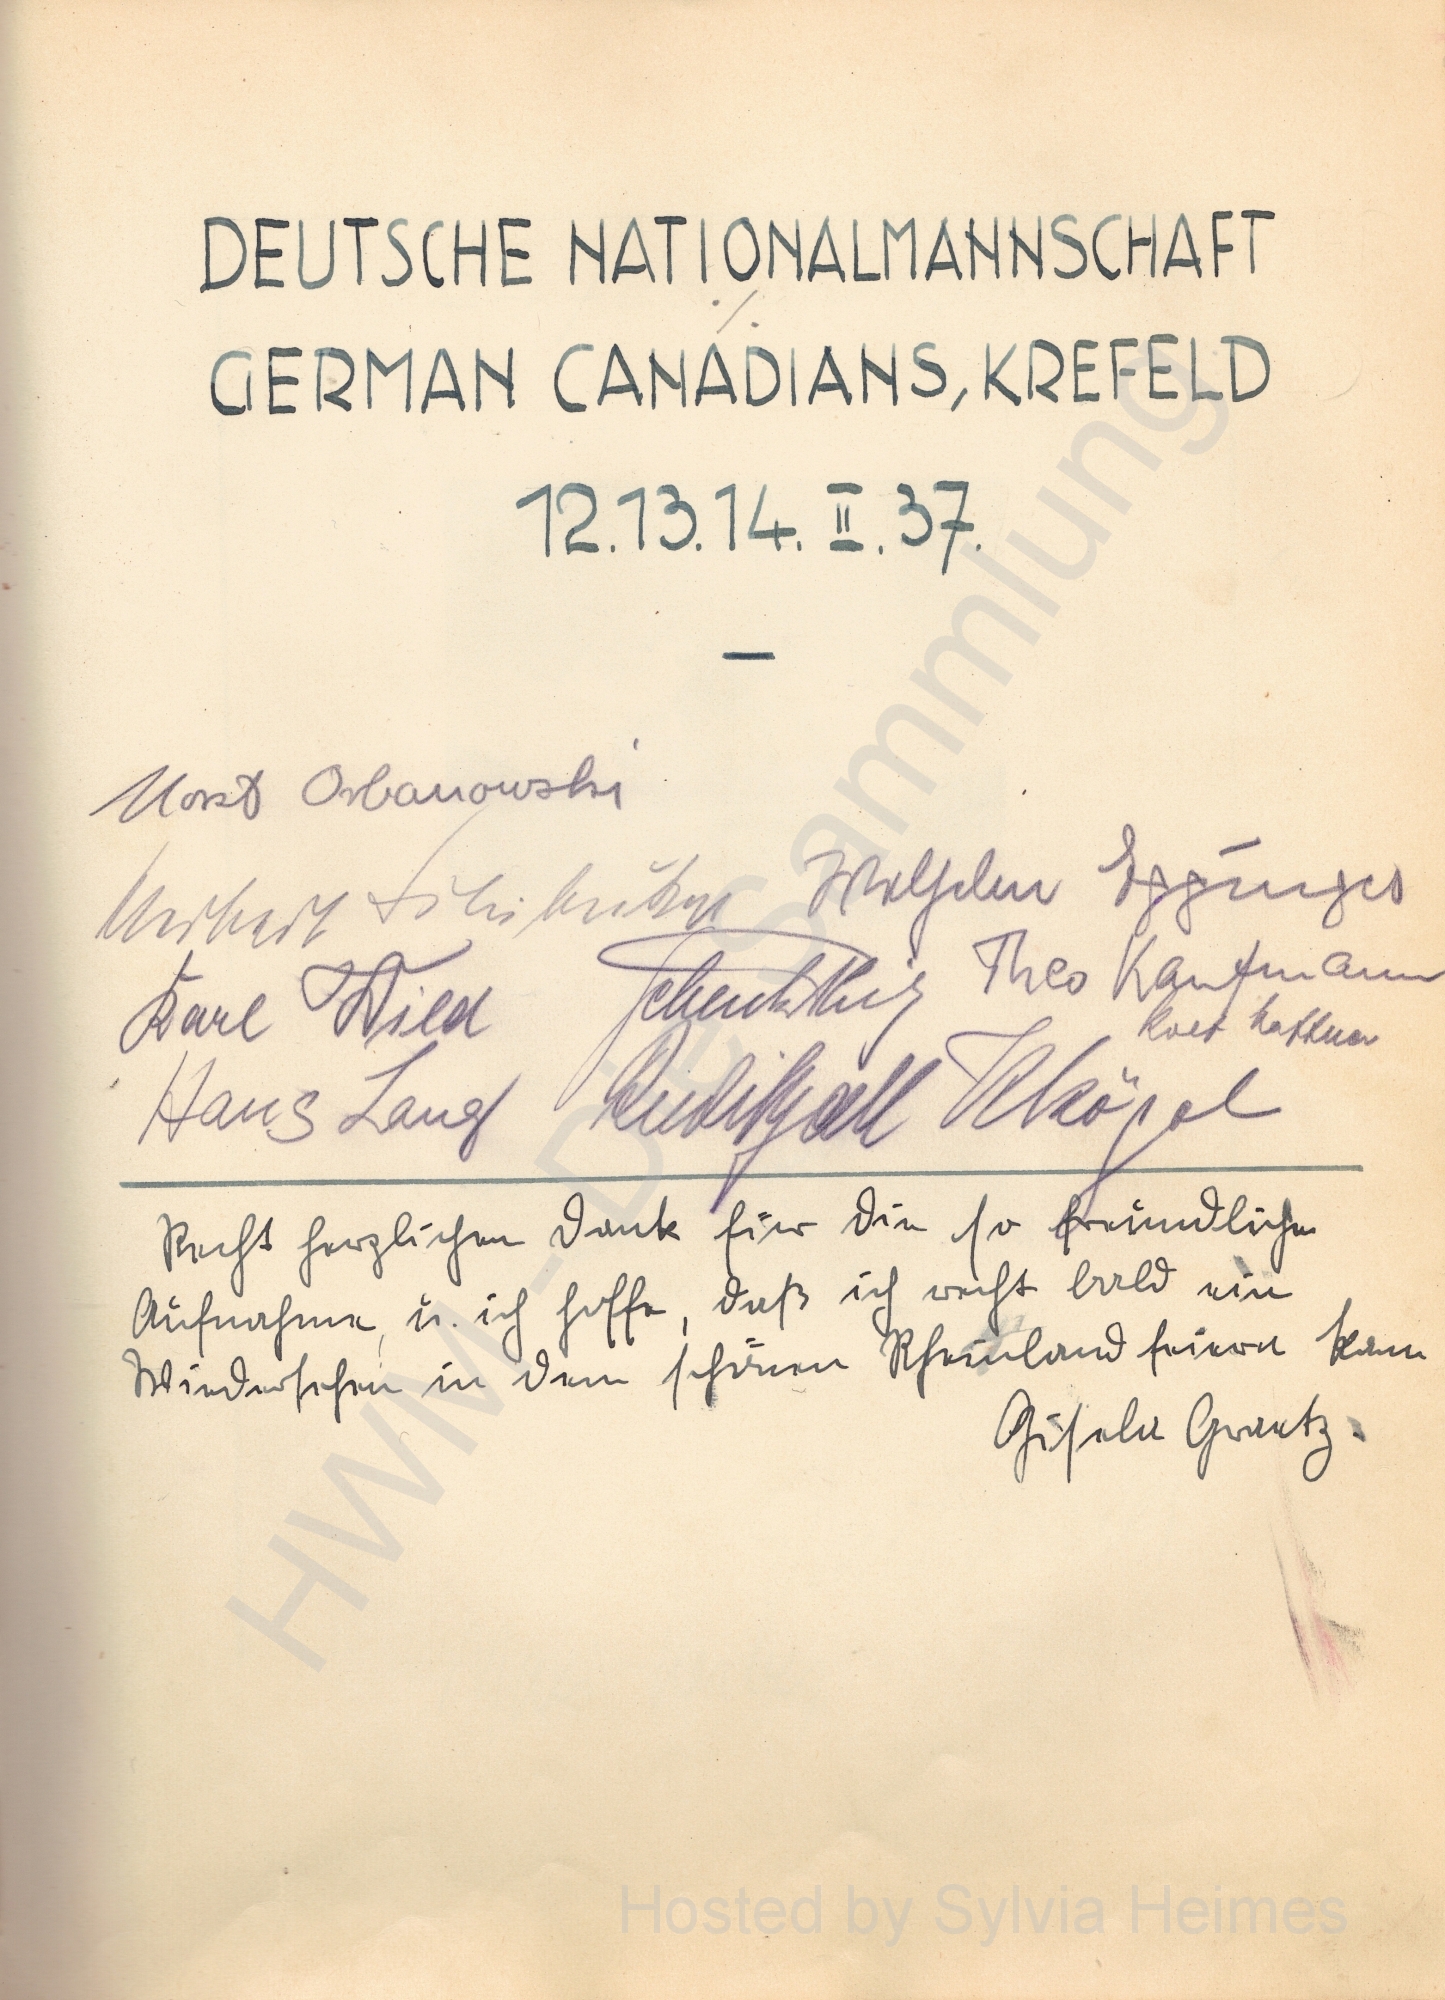 DEUTSCHE NATIONALMANNSCHAFT
./.
GERMAN CANADIANS, KREFELD
12.13.14. II. 37.
—
Horst Orbanowski
Herbert Schibukat Wilhelm
Karl Wild Schenk Theo Kaufmann
Hans Lang Rudi Ball
Recht herzlichen Dank für die so freundliche
Aufnahme, u. ich hoffe, daß ich recht bald ein
Wiedersehen in dem schönen Rheinland feiern kann
Gisela Graetz.
HWM - DEiSammlung
Hosted by Sylvia Heimes